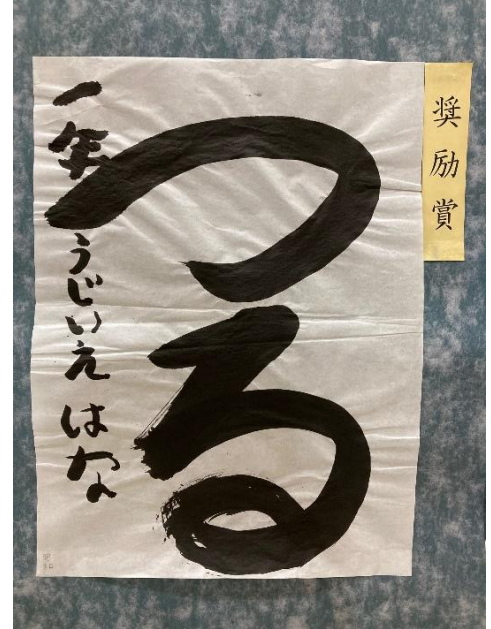 奨励賞
つる
一年 うじいえ はな